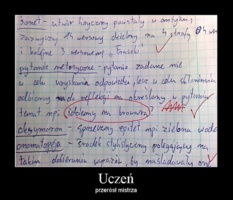 Sonet - utwór liryczny powstały w antyku,
zawierający 14 wersowy dzielony na 2 strofy 4 wers
i kolejne 3 wersowe, "Fraszki"
pytanie retoryczne - pytanie zadane nie
w celu uzyskania odpowiedzi, lecz w celu skłonienia
odbiorcy do refleksji na określony w pytaniu
temat np. idziemy na browara?
oksymoron - sprzeczny epitet np. zielona woda
onomatopeja - środek stylistyczny polegający na
takim dobieraniu wyrazów, by naśladowały one
Uczeń
przerósł mistrza